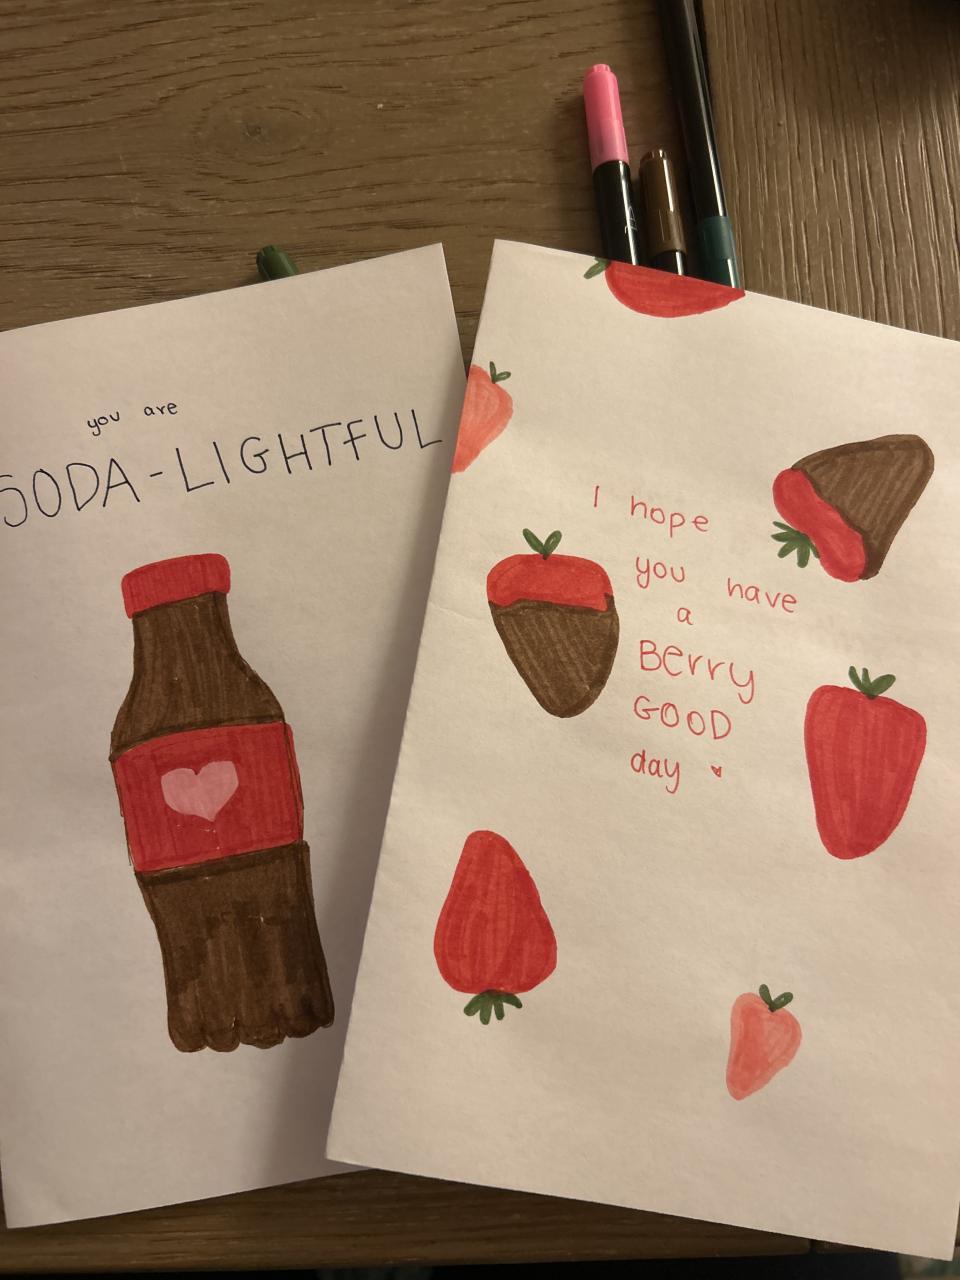 you are
SODA-LIGHTFUL
I hope
you have
a
Berry
GOOD
day